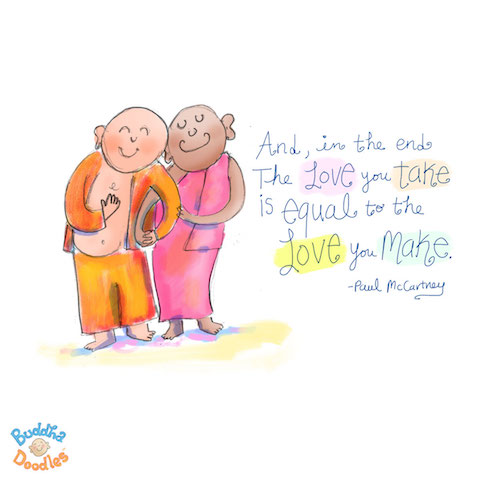 And, in the end
The Love you take
is equal to the
Love you Make.
-Paul McCartney
Buddha
Doodles